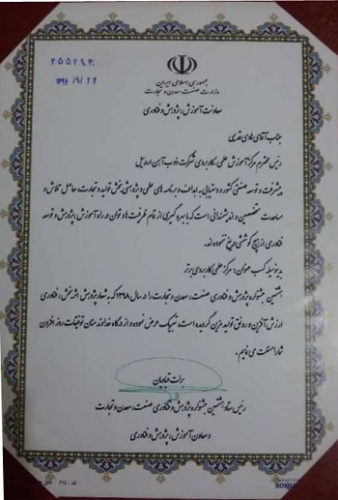 ۳۵۵۲۹۴
۱۳۹۸/۹/۲۴
جمهوری اسلامی ایران
وزارت صنعت، معدن و تجارت
معاونت آموزش، پژوهش و فناوری
جناب آقای هادی قدیری
رئیس محترم مرکز آموزش علمی-کاربردی شرکت ذوب آهن اردبیل
پیشرفت و توسعه صنعتی کشور و دستیابی به اهداف و برنامه های علمی و پژوهشی بخش تولید و تجارت، حاصل تلاش و
مساعدت متخصصین و اندیشمندانی است که با بهره گیری از تمام ظرفیت ها و توان در راه آموزش، پژوهش و توسعه
فناوری از هیچ کوششی دریغ ننموده اند.
بدینوسیله کسب عنوان: مرکز علمی کاربردی برتر
هشتمین جشنواره پژوهش و فناوری صنعت، معدن و تجارت را در سال ۱۳۹۸ که به شعار پژوهش اثربخش، فناوری
ارزش آفرین و رونق تولید مزین گردیده است، تبریک عرض نموده و از درگاه خداوند منان توفیقات روز افزون
شما را مسئلت می نمایم.
برات قبادیان
رئیس ستاد هشتمین جشنواره پژوهش و فناوری صنعت، معدن و تجارت
و معاون آموزش، پژوهش و فناوری